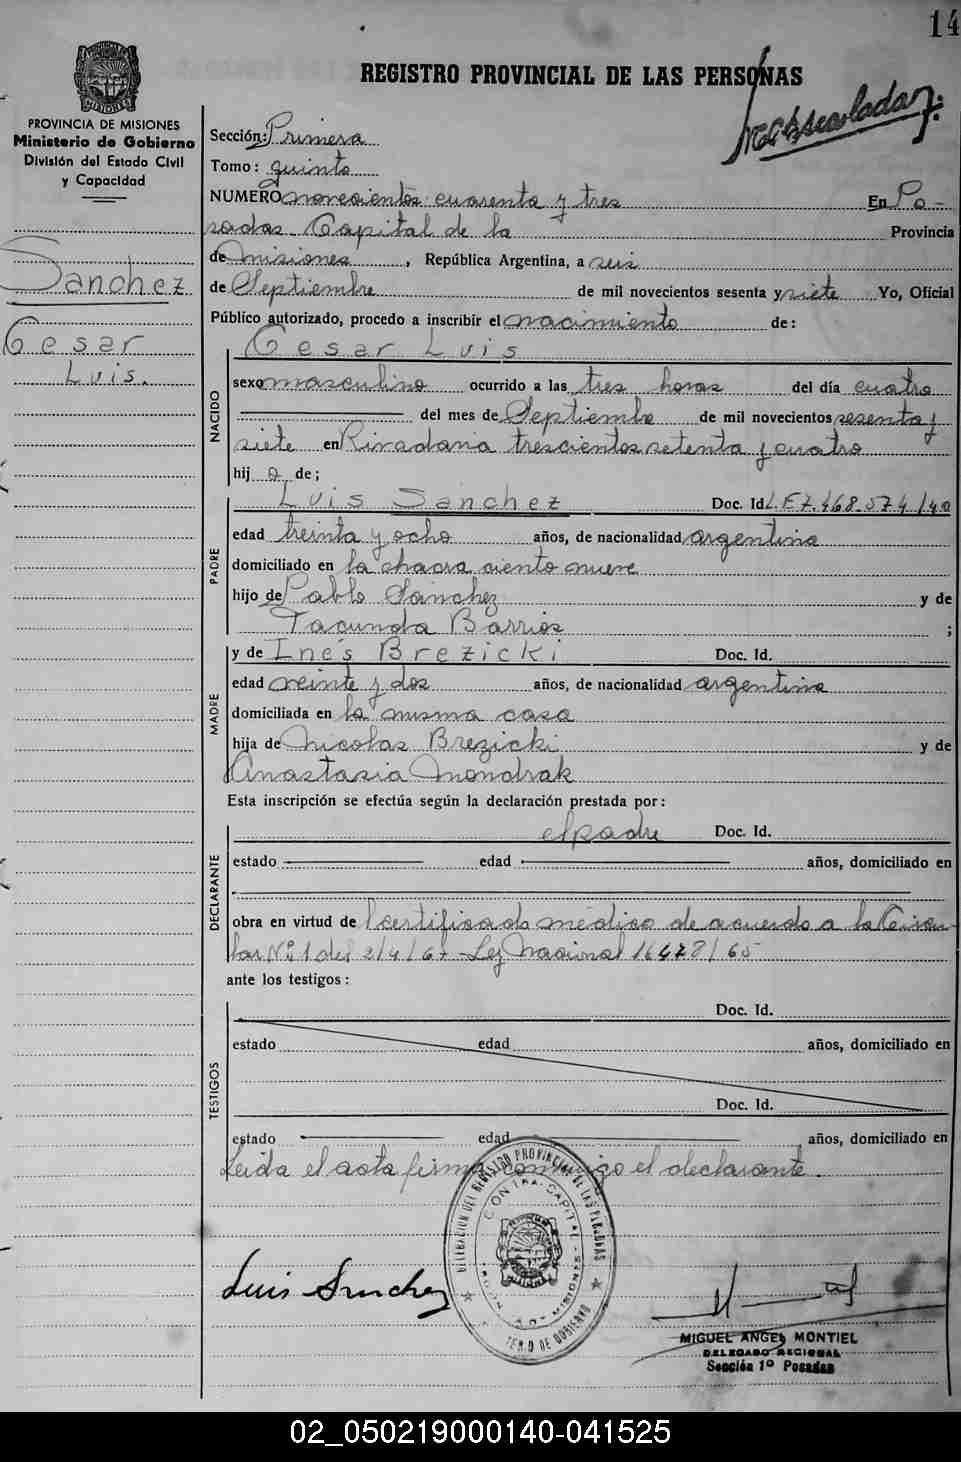 14
REGISTRO PROVINCIAL DE LAS PERSONAS
PROVINCIA DE MISIONES
Ministerio de Gobierno
División del Estado Civil
y Capacidad
Sanchez
Cesar
Luis.
Sección: Primera
Tomo: quinto
NUMERO novecientos cuarenta y tres En Po-
sadas Capital de la Provincia
de Misiones, República Argentina, a seis
de Septiembre de mil novecientos sesenta y siete Yo, Oficial
Público autorizado, procedo a inscribir el nacimiento de:
Cesar Luis
NACIDO
sexo masculino ocurrido a las tres horas del día cuatro
del mes de Septiembre de mil novecientos sesenta y
siete en Rivadavia trescientos setenta y cuatro
hij o de;
Luis Sanchez Doc. Id. L.E 7.468.574/40
PADRE
edad treinta y ocho años, de nacionalidad argentina
domiciliado en la chacra ciento nueve
hijo de Pablo Sánchez y de
Facunda Barrios ;
y de Inés Brezicki Doc. Id.
MADRE
edad veinte y dos años, de nacionalidad argentina
domiciliada en la misma casa
hija de Nicolas Brezicki y de
Anastasia Mondrak
Esta inscripción se efectúa según la declaración prestada por:
DECLARANTE
el padre Doc. Id.
estado edad años, domiciliado en
obra en virtud de certificado médico de acuerdo a la Circu-
lar Nº 1 del 2/4/67 - Ley Nacional 16478/65
ante los testigos:
TESTIGOS
Doc. Id.
estado edad años, domiciliado en
Doc. Id.
estado edad años, domiciliado en
Leida el acta firma conmigo el declarante.
DELEGACION DEL REGISTRO PROVINCIAL DE LAS PERSONAS
Luis Sanchez
MIGUEL ANGEL MONTIEL
DELEGADO REGIONAL
Sección 1º Posadas
02_050219000140-041525